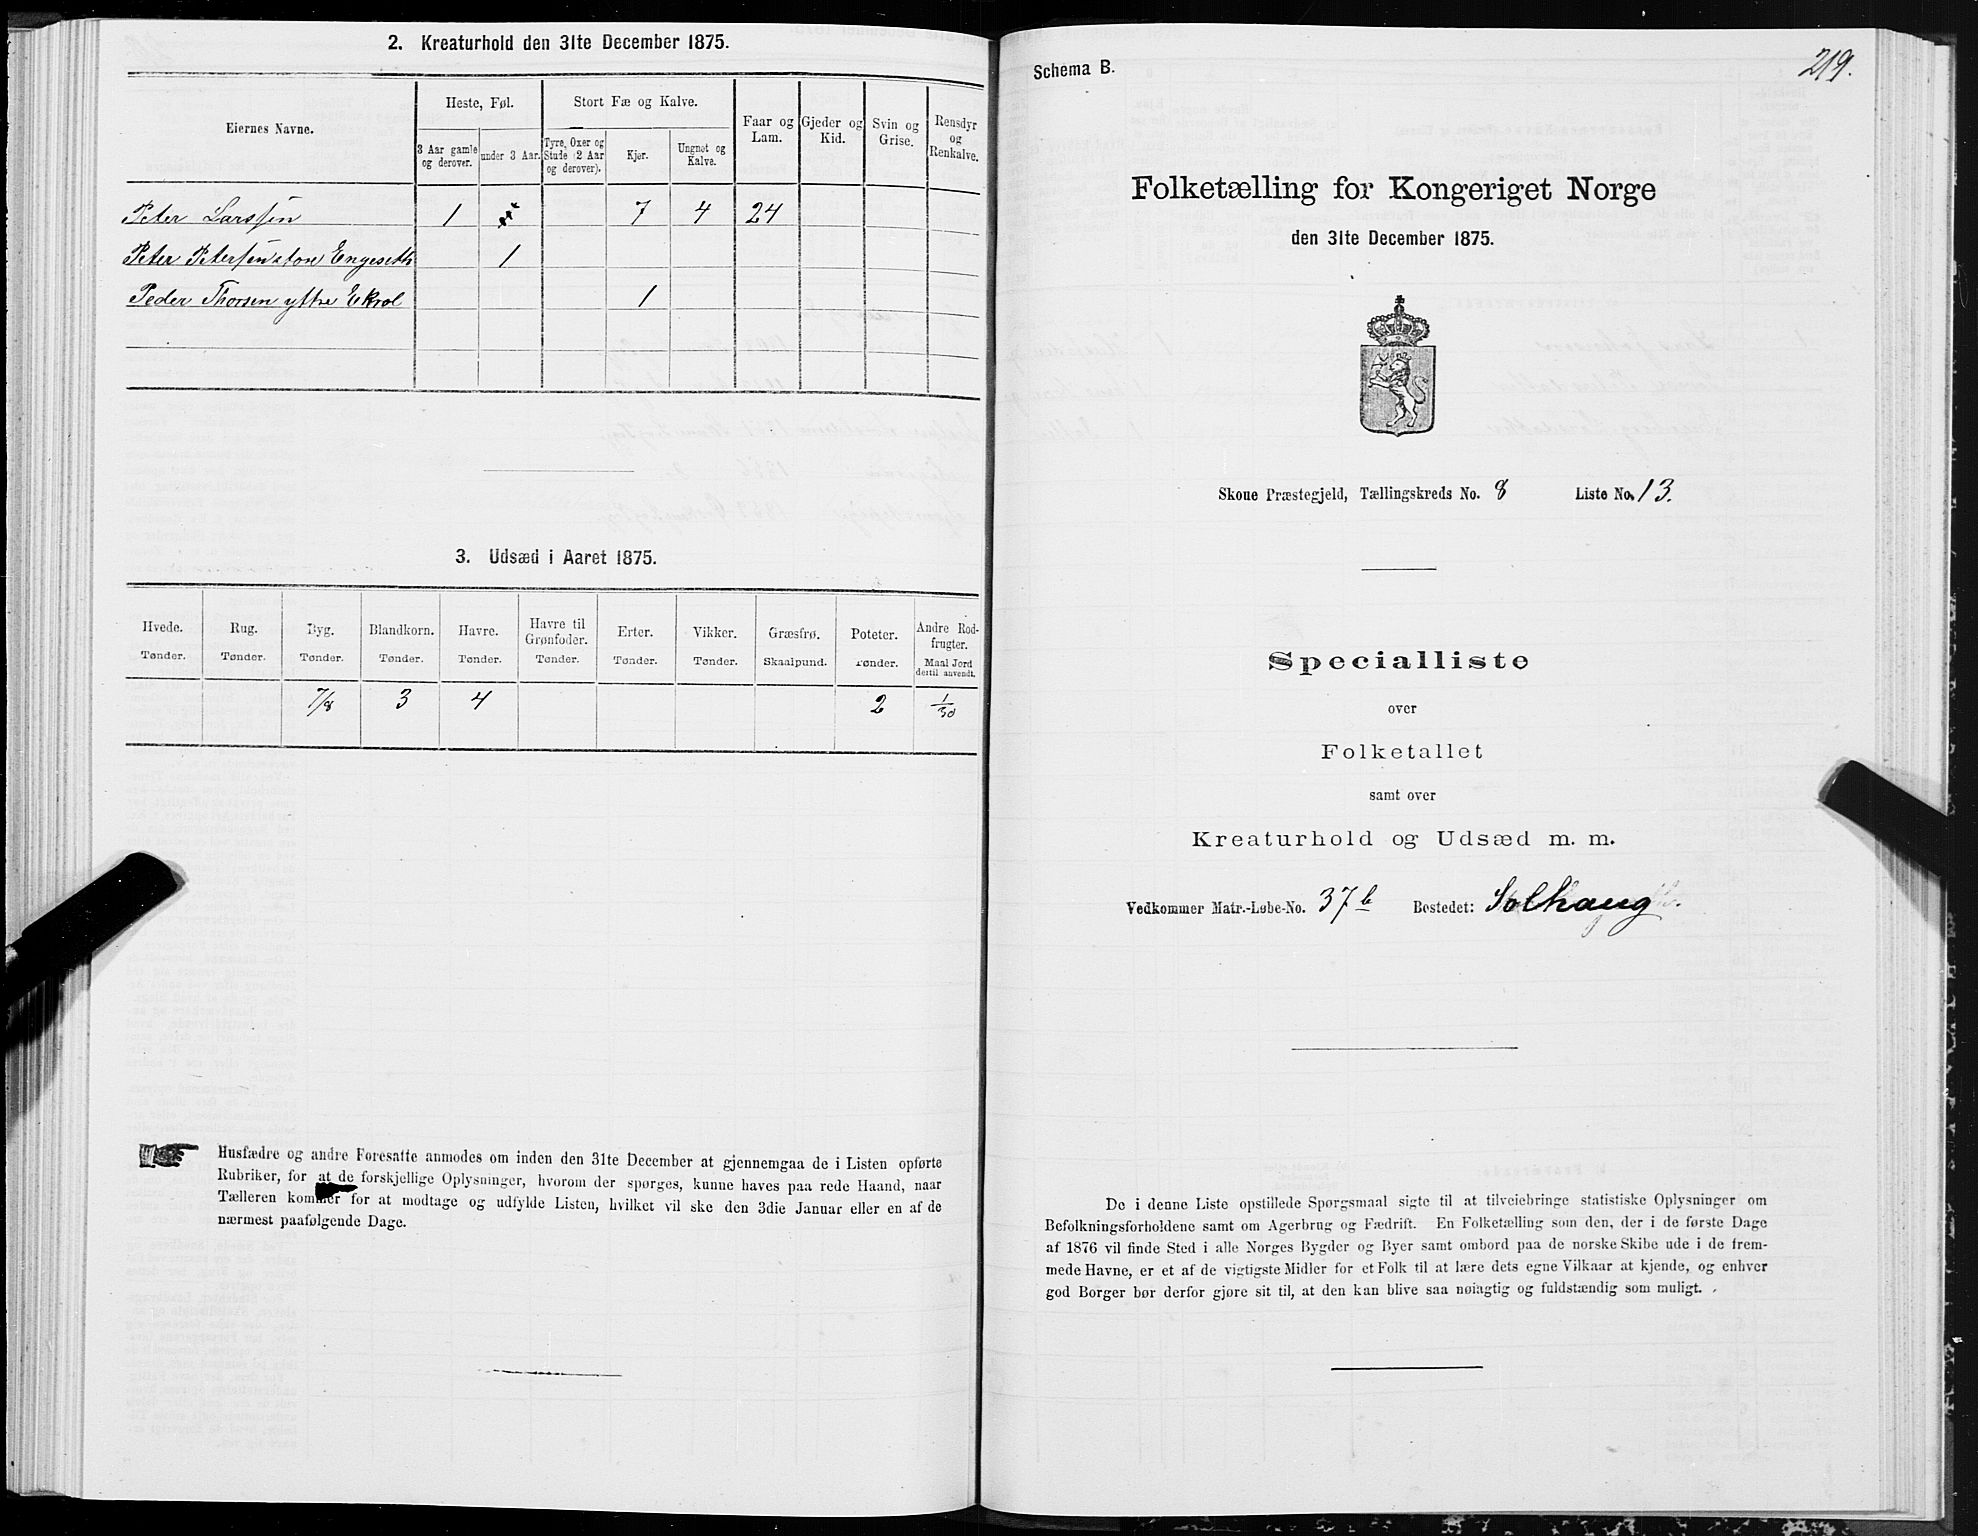 2. Kreaturhold den 31te December 1875.
Eiernes Navne.
Heste, Føl.
Stort Fæ og Kalve.
Faar og Lam.
Gjeder og Kid.
Svin og Grise.
Rensdyr og Renkalve.
3 Aar gamle og derover.
under 3 Aar.
Tyre, Oxer og Stude (2 Aar og derover).
Kjør.
Ungnøt og Kalve.
Peter Larssen 1 7 4 24
Peter Petersen store Engeseth 1
Peder Thorsen yttre Ekrol 1
3. Udsæd i Aaret 1875.
Hvede. Rug. Byg. Blandkorn. Havre. Havre til Grønfoder. Erter. Vikker. Græsfrø. Poteter. Andre Rodfrugter.
Tønder. Tønder. Tønder. Tønder. Tønder. Tønder. Tønder. Tønder. Skaalpund. Tønder. Maal Jord dertil anvendt.
7/8 3 4 2 1/30
Husfædre og andre Foresatte anmodes om inden den 31te December at gjennemgaa de i Listen opførte
Rubriker, for at de forskjellige Oplysninger, hvorom der spørges, kunne haves paa rede Haand, naar
Tælleren kommer for at modtage og udfylde Listen, hvilket vil ske den 3die Januar eller en af de
nærmest paafølgende Dage.
219.
Schema B.
Folketælling for Kongeriget Norge
den 31te December 1875.
Skoue Præstegjeld, Tællingskreds No. 8 Liste No. 13.
Specialliste
over
Folketallet
samt over
Kreaturhold og Udsæd m. m.
Vedkommer Matr.-Løbe-No. 37b Bostedet: Solhaug
De i denne Liste opstillede Spørgsmaal sigte til at tilveiebringe statistiske Oplysninger om
Befolkningsforholdene samt om Agerbrug og Fædrift. En Folketælling som den, der i de første Dage
af 1876 vil finde Sted i alle Norges Bygder og Byer samt ombord paa de norske Skibe ude i de frem-
mede Havne, er et af de vigtigste Midler for et Folk til at lære dets egne Vilkaar at kjende, og enhver
god Borger bør derfor gjøre sit til, at den kan blive saa nøiagtig og fuldstændig som muligt.